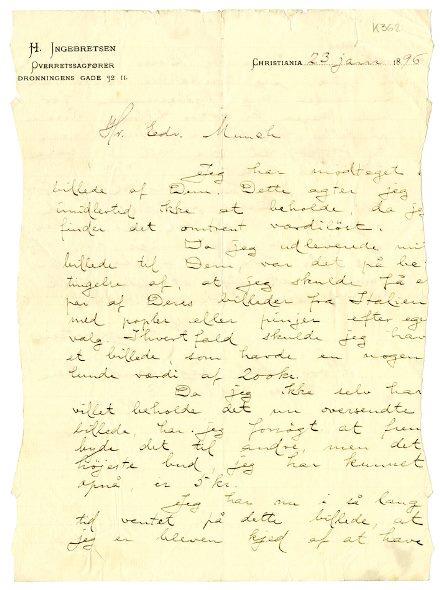 K 362
H. INGEBRETSEN
OVERRETSSAGFØRER
DRONNINGENS GADE 42 II.
CHRISTIANIA 23 jan. 1896
Hr. Edv. Munch
Jeg har modtaget
billede af Dem. Dette agter jeg
imidlertid ikke at beholde, da jeg
finder det omtrent værdiløst.
Da jeg udleverede mit
billede til Dem, var det på be-
tingelse af, at jeg skulde få et
par af Deres billeder fra Italien
med popler eller pinjer efter eget
valg. I hvert fald skulde jeg have
et billede, som havde en nogen-
lunde værdi af 200 kr.
Da jeg ikke selv har
villet beholde det nu oversendte
billede, har jeg forsøgt at frem-
byde det til andre, men det
højeste bud, jeg har kunnet
opnå, er 5 kr.
Jeg har nu i så lang
tid ventet på dette billede, at
jeg er bleven kjed af at have